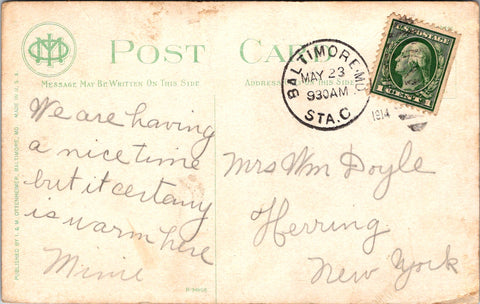 POST CARD
MESSAGE MAY BE WRITTEN ON THIS SIDE
We are having
a nice time
but it certany
is warm here
Minie
BALTIMORE, MD.
MAY 23
930AM
STA.C
1914
U.S. POSTAGE
1 CENT 1
Mrs Wm Doyle
Herring
New York
PUBLISHED BY I. & M. OTTENHEIMER, BALTIMORE, MD. MADE IN U.S.A.